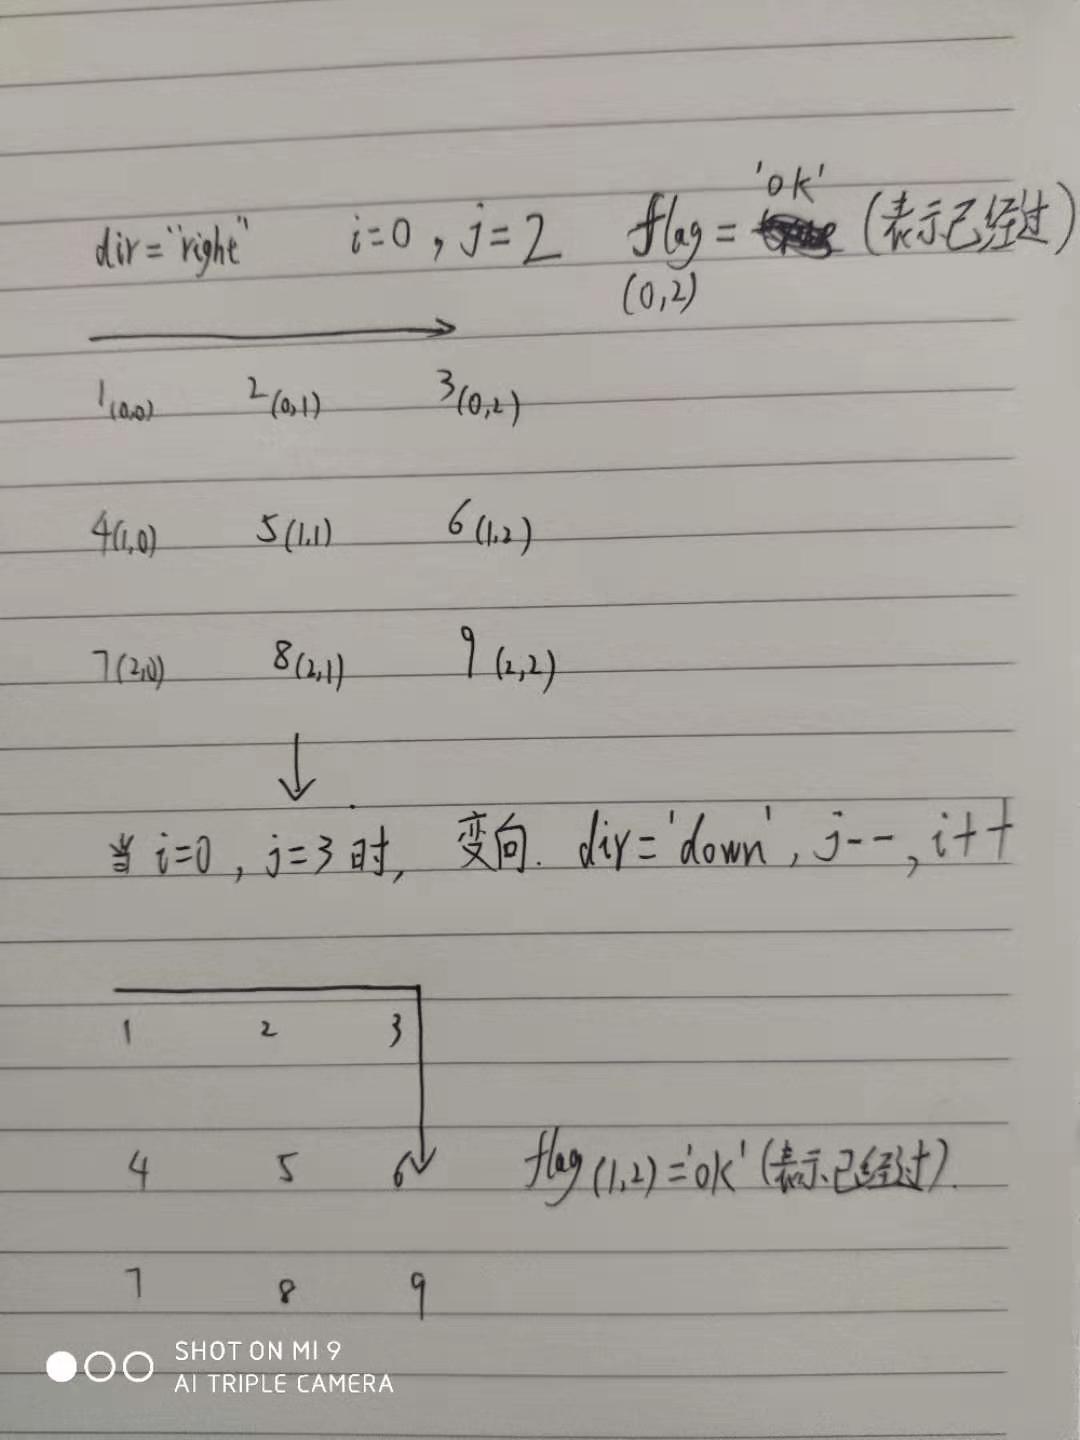 'ok'
dir="right" i=0,j=2 flag= (表示已经过)
(0,2)
1(0,0) 2(0,1) 3(0,2)
4(1,0) 5(1,1) 6(1,2)
7(2,0) 8(2,1) 9(2,2)
当i=0,j=3时, 变向. dir='down',j--,i++
1 2 3
4 5 6 flag(1,2)='ok'(表示已经过).
7 8 9
SHOT ON MI 9
AI TRIPLE CAMERA